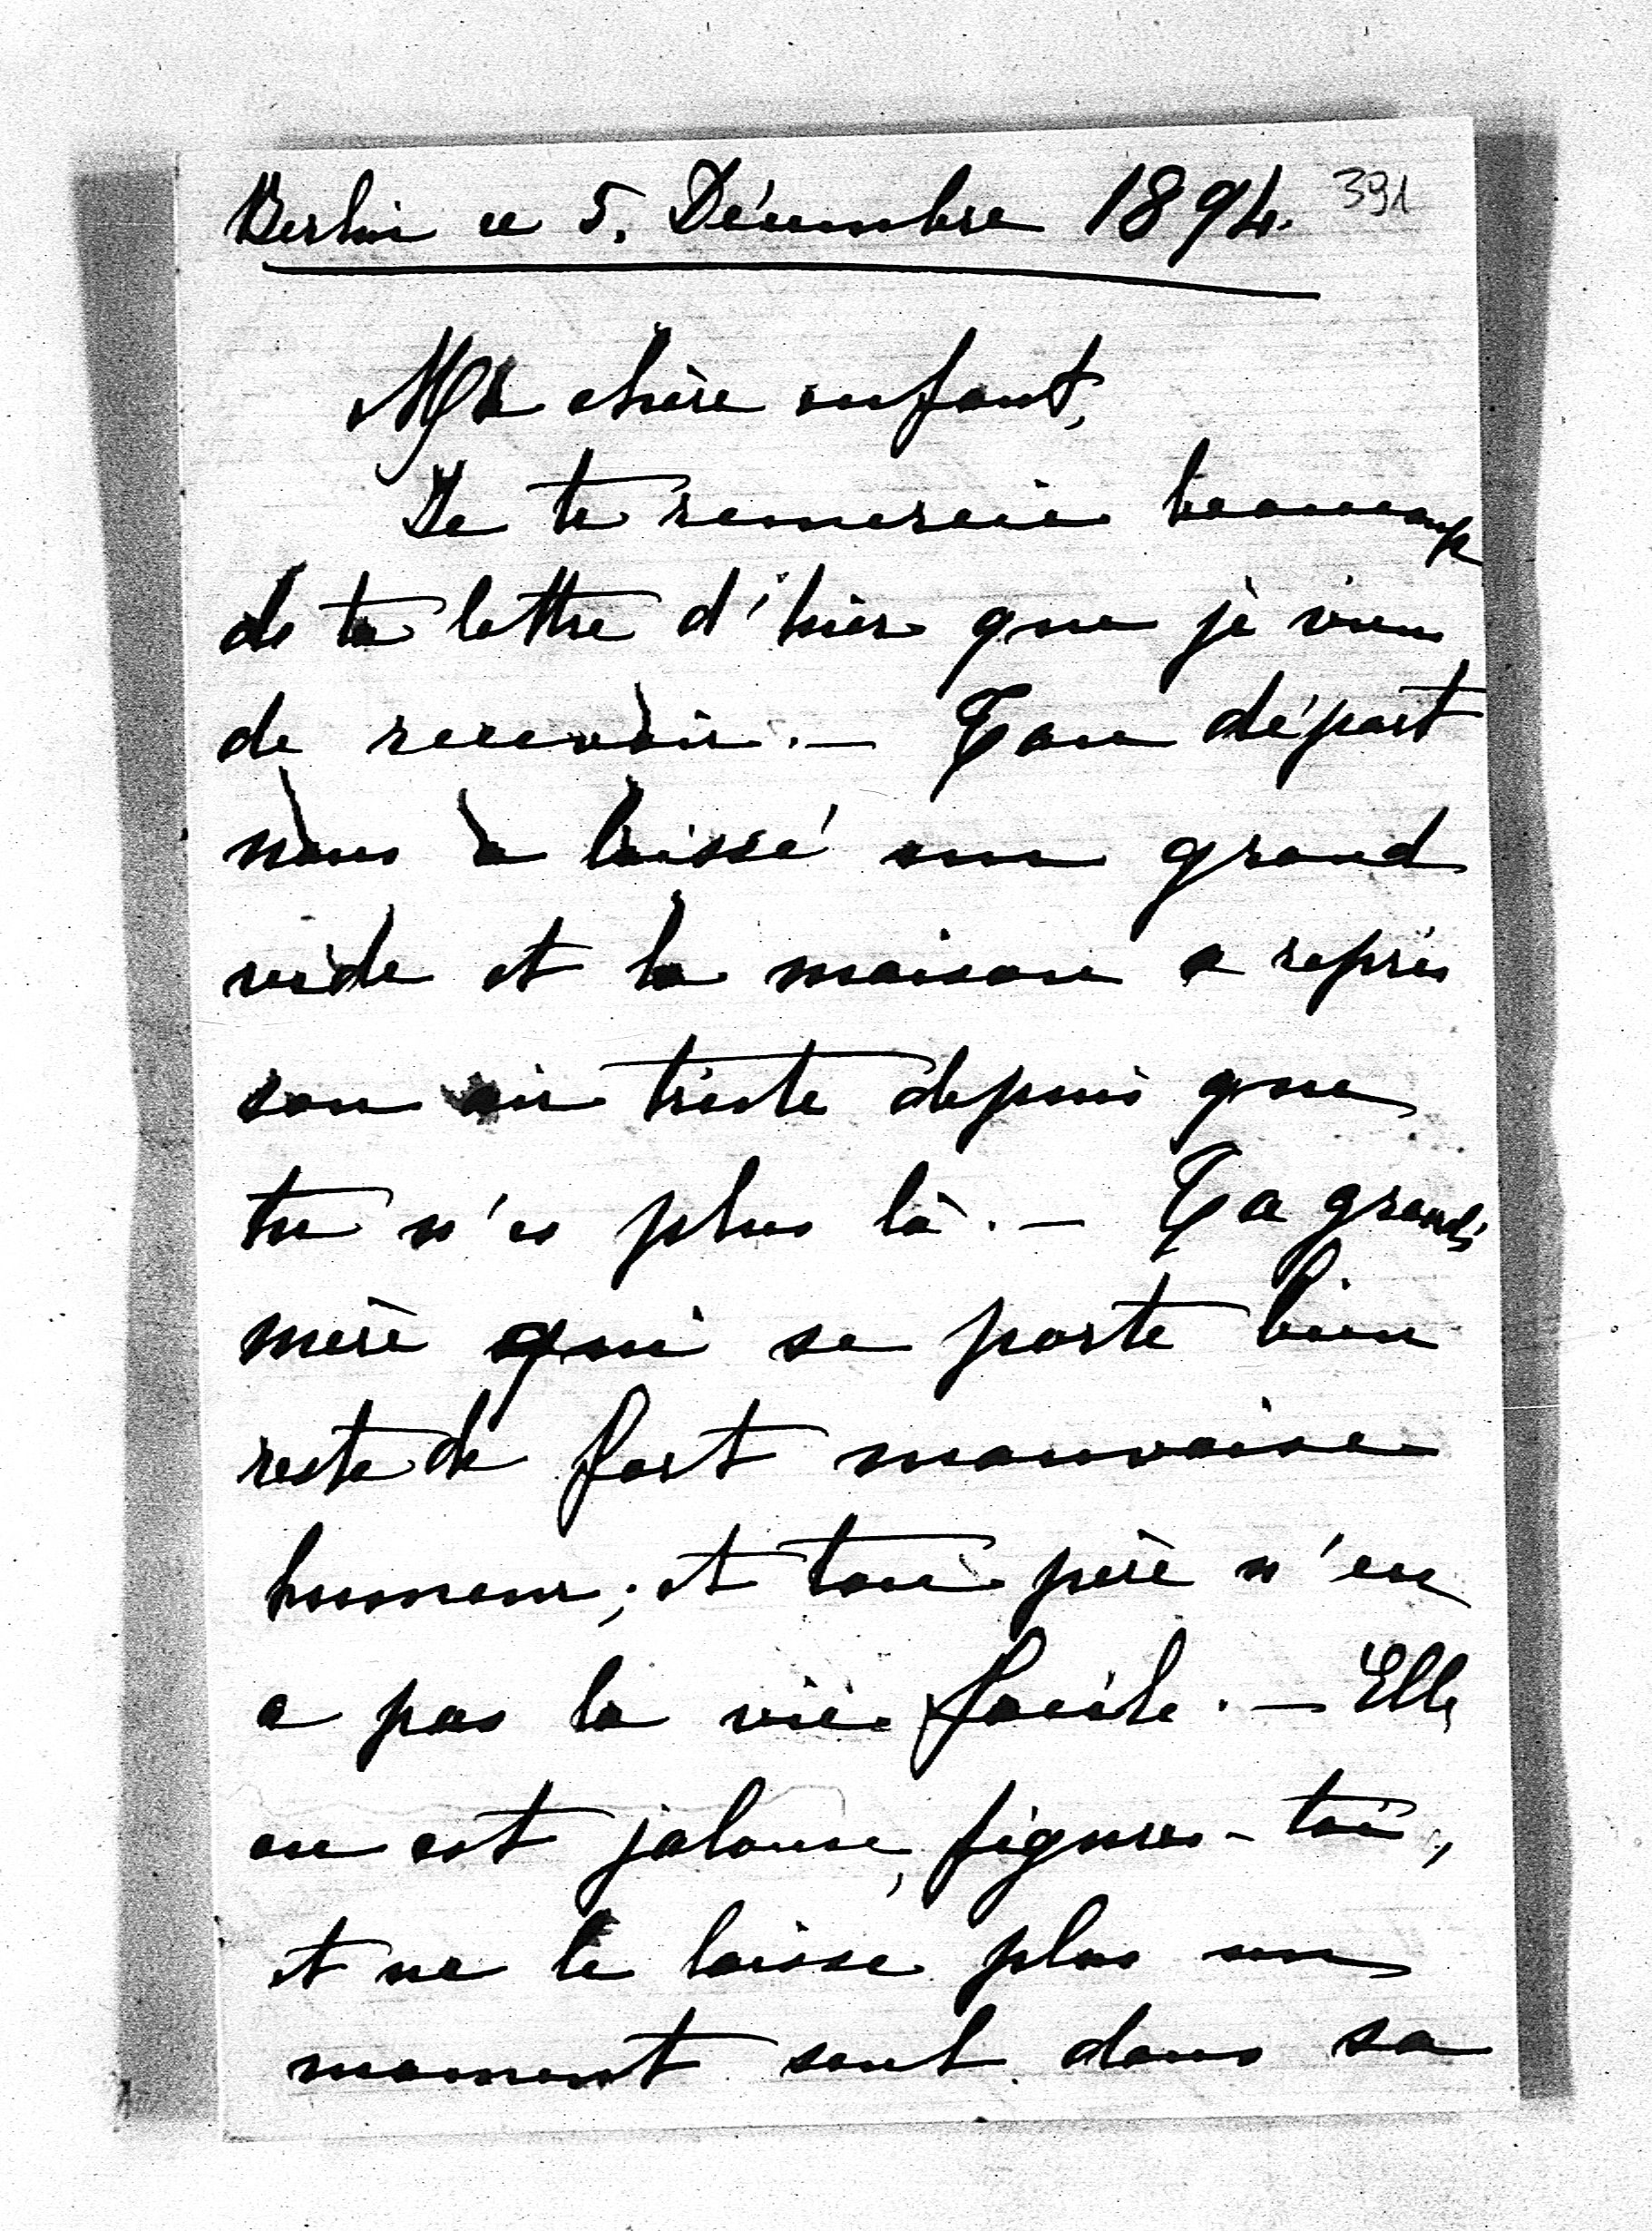 Berlin ce 5. Décembre 1894.
391
Ma chère enfant,
Je te remercie beaucoup
de ta lettre d'hier que je viens
de recevoir. — Ton départ
nous a laissé un grand
vide et la maison a repris
son air triste depuis que
tu n'es plus là. — Ta grand'
mère qui se porte bien
reste de fort mauvaise
humeur, et ton père n'en
a pas la vie facile. — Elle
en est jalouse, figures-toi,
et ne le laisse plus un
moment seul dans sa